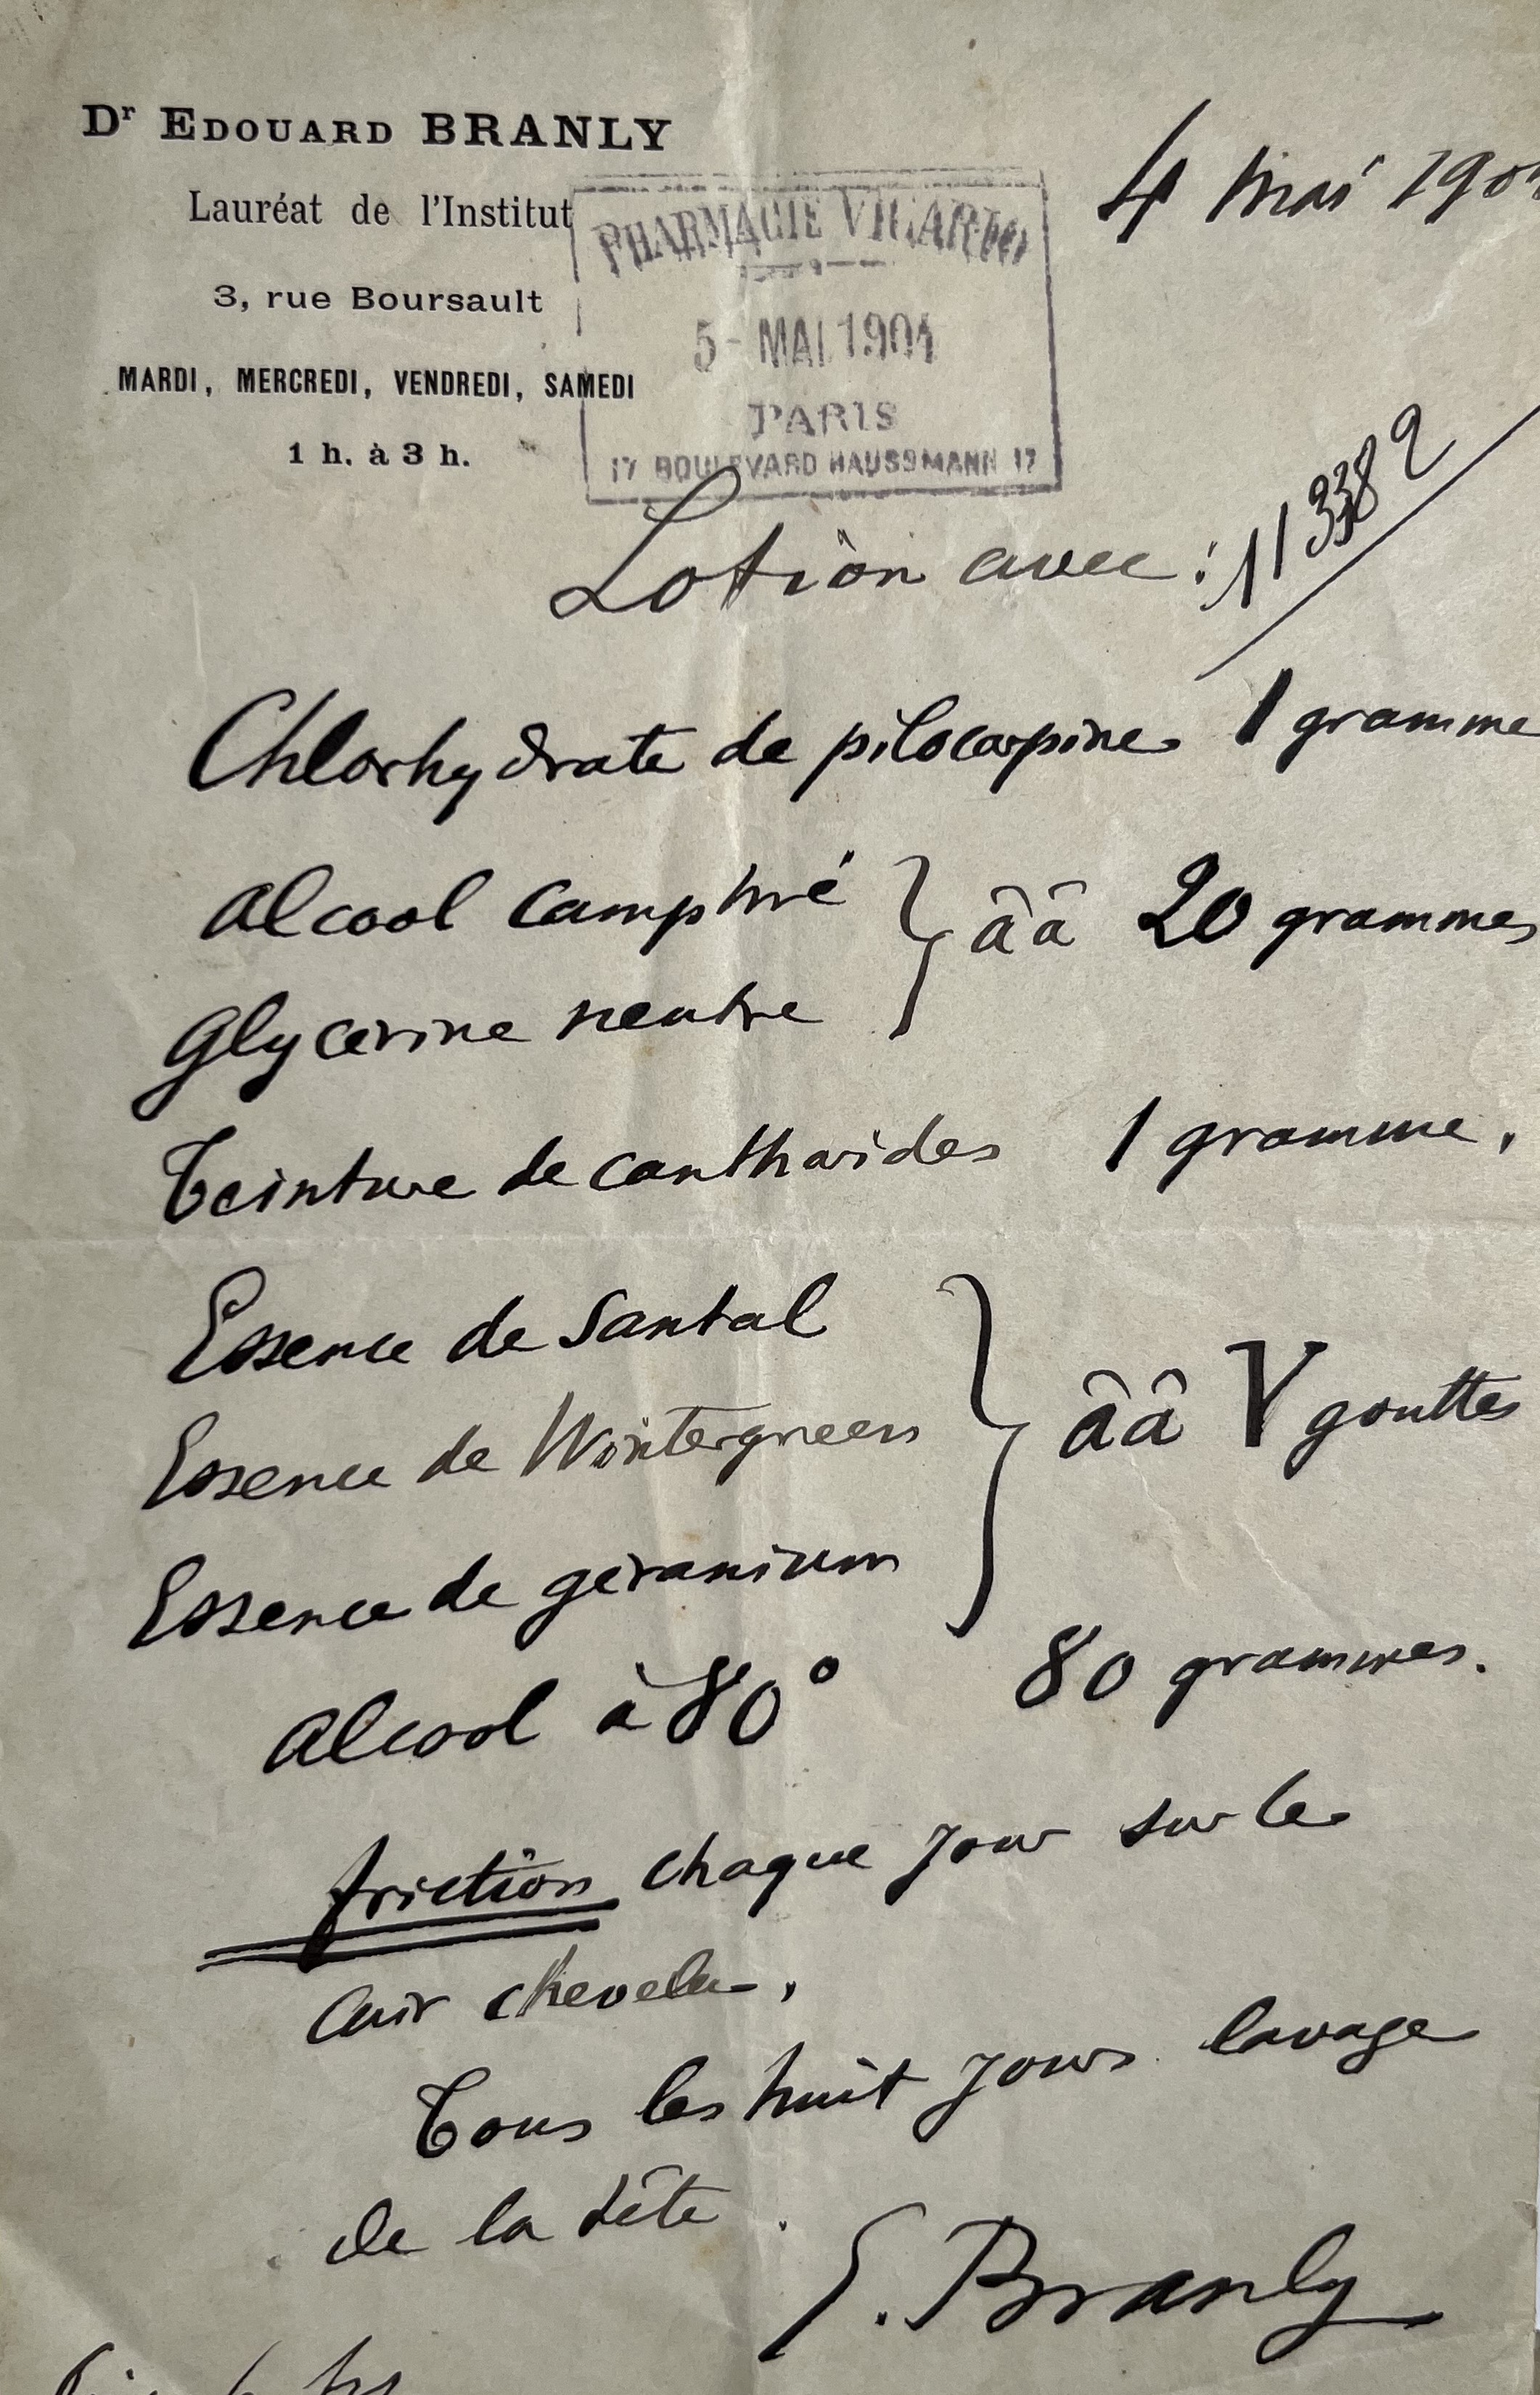 Dr EDOUARD BRANLY
Lauréat de l'Institut
3, rue Boursault
MARDI, MERCREDI, VENDREDI, SAMEDI
1 h. à 3 h.
4 Mai 190
PHARMACIE VIGARIO
5 - MAI 1904
PARIS
17 BOULEVARD HAUSSMANN 17
113382
Lotion avec :
Chlorhydrate de pilocarpine 1 gramme
Alcool camphré
Glycerine neutre
} ââ 20 grammes
Teinture de cantharides 1 gramme.
Essence de Santal
Essence de Wintergreen
Essence de géranium
} ââ V gouttes
Alcool à 80° 80 grammes.
friction chaque jour sur le
cuir chevelu.
Tous les huit jours lavage
de la tête.
E. Branly